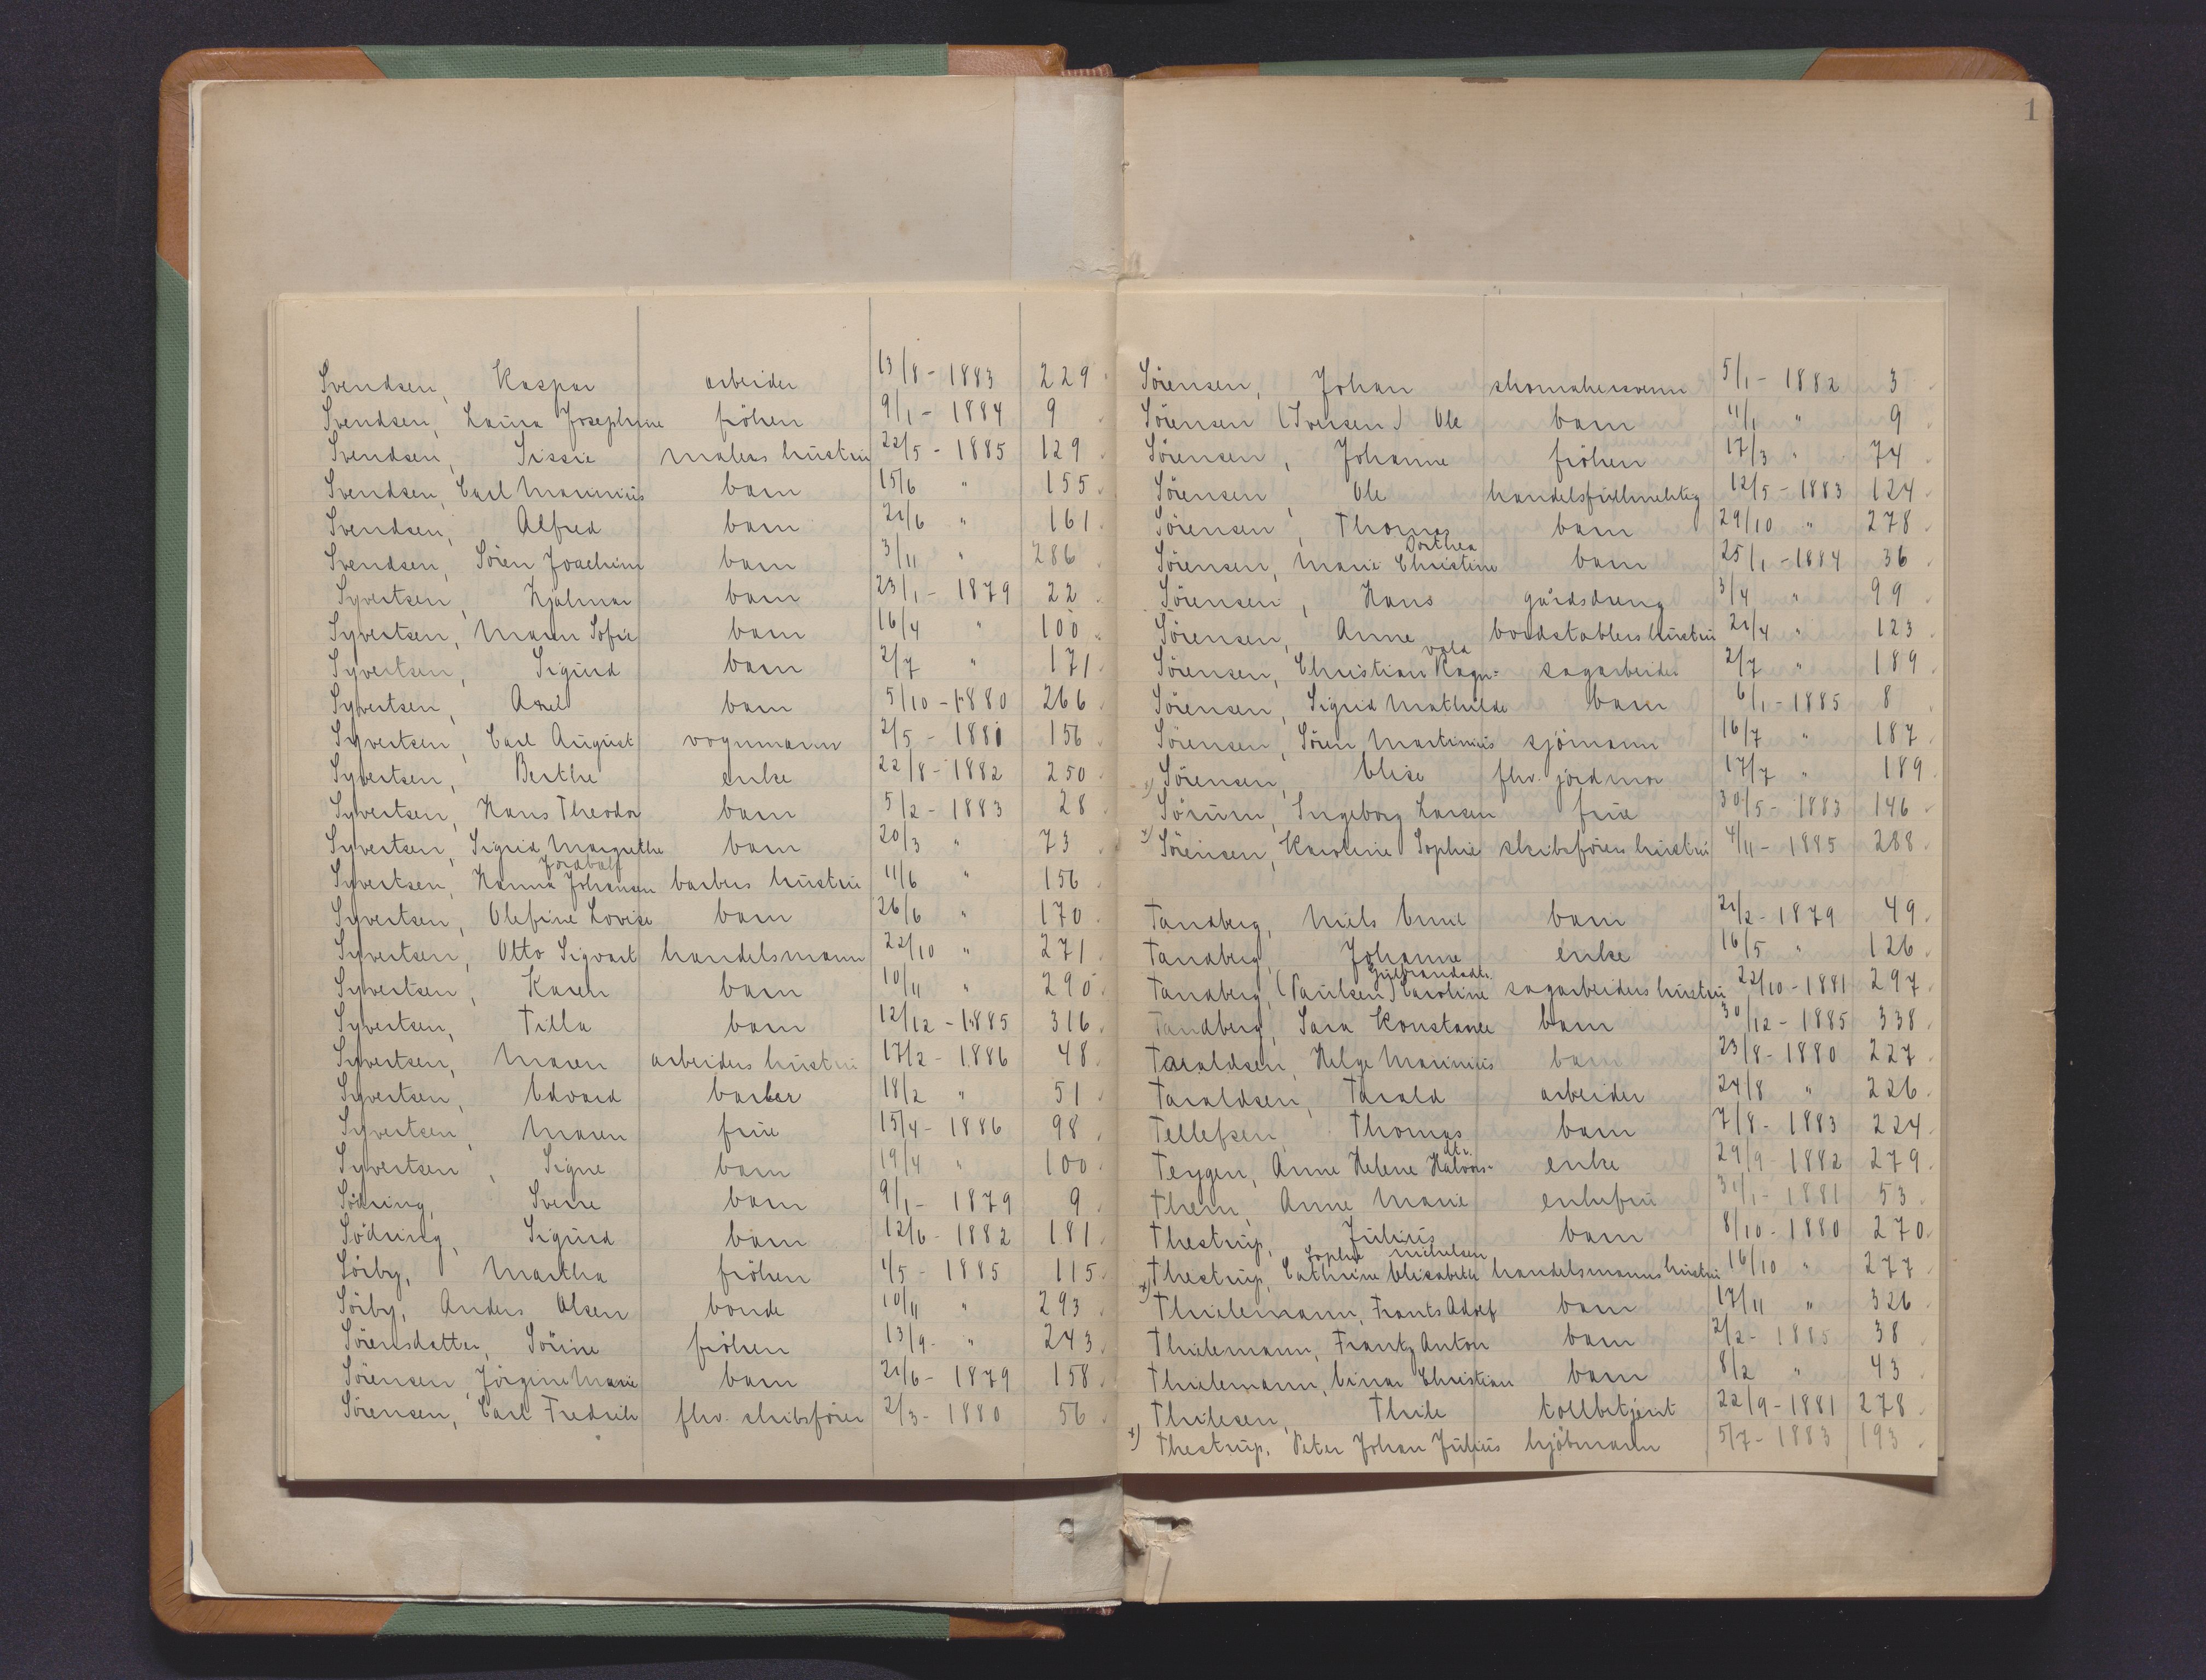 1
Svendsen, Kaspar arbeider 13/8 - 1883 229
Svendsen, Laura Josephine fröken 9/1 - 1884 9
Svendsen, Sissie malers hustru 22/5 - 1885 129
Svendsen, Carl Marinius barn 15/6 " 155
Svendsen, Alfred barn 21/6 " 161
Svendsen, Sören Joachim barn 3/11 " 286
Syvertsen, Hjalmar barn 23/1 - 1879 22
Syvertsen, Maren Sofie barn 16/4 " 100
Syvertsen, Sigurd barn 2/7 " 171
Syvertsen, Axel barn 5/10 - 1880 266
Syvertsen, Carl August vognmann 2/5 - 1881 156
Syvertsen, Berthe enke 22/8 - 1882 250
Syvertsen, Hans Theodor barn 5/2 - 1883 28
Syvertsen, Sigrid Margrethe barn 20/3 " 73
Syvertsen, Hanna Johansen barbers hustru 11/6 " 156
Syvertsen, Olefine Lovise barn 26/6 " 170
Syvertsen, Otto Sigvart handelsmann 22/10 " 271
Syvertsen, Karen barn 10/11 " 290
Syvertsen, Tilla barn 12/12 - 1885 316
Syvertsen, Maren arbeiders hustru 17/2 - 1886 48
Syvertsen, Edvard barber 18/2 " 51
Syvertsen, Maren frue 15/4 - 1886 98
Syvertsen, Signe barn 19/4 " 100
Södring, Sverre barn 9/1 - 1879 9
Södring, Sigurd barn 12/6 - 1882 181
Sörby, Martha fröken 1/5 - 1885 115
Sörby, Anders Olsen bonde 10/11 " 293
Sörensdatter, Sörine fröken 13/9 - " 243
Sörensen, Jörgine Marie barn 21/6 - 1879 158
Sörensen, Carl Fredrik fhv. skibsförer 2/3 - 1880 56
Sörensen, Johan skomakersvenn 5/1 - 1882 3
Sörensen (Iversen) Ole barn 11/1 " 9
Sörensen, Johanne fröken 17/3 " 74
Sörensen, Ole handelsfullmektig 12/5 - 1883 124
Sörensen, Thomas barn 29/10 " 278
Sörensen, Marie Christine Dorthea barn 25/1 - 1884 36
Sörensen, Hans gårdsdreng 3/4 " 99
Sörensen, Anne bordstablers hustru 21/4 " 123
Sörensen, Christian Ragn=vald sagarbeider 2/7 " 189
Sörensen, Sigrid Mathilde barn 6/1 - 1885 8
Sörensen, Sören Martinius sjömann 16/7 " 187
x) Sörensen, Elise fhv. jordmor 17/7 " 189
Sörum, Ingeborg Larsen frue 30/5 - 1883 146
x) Sörensen, Karoline Sophie skibsförers hustru 4/11 - 1885 288
Tandberg, Niels Emil barn 21/2 - 1879 49
Tandberg, Johanne enke 16/5 " 126
Tandberg, (Paulsen) Caroline Gulbrandsdtr. sagarbeiders hustru 22/10 - 1881 297
Tandberg, Sara Konstanse barn 30/12 - 1885 338
Taraldsen, Helge Marinius barn 23/8 - 1880 227
Taraldsen, Tarald arbeider 24/8 " 226
Tellefsen, Thomas barn 7/8 - 1883 224
Teygen, Anne Helene Halvors-dtr. enke 29/9 - 1882 279
Them, Anne Marie enkefru 31/1 - 1881 53
Thestrup, Julius barn 8/10 - 1880 270
Thestrup, Cathrine Elisabeth Sophie Mikelsen handelsmanns hustru 16/10 " 277
x) Thielemann, Frants Adolf barn 17/11 " 326
Thielemann, Frantz Anton barn 2/2 - 1885 38
Thielemann, Einar Christian barn 8/2 " 43
Thilesen, Thile tollbetjent 22/9 - 1881 278
x) Thestrup, Peter Johan Julius kjöbmann 5/7 - 1883 193